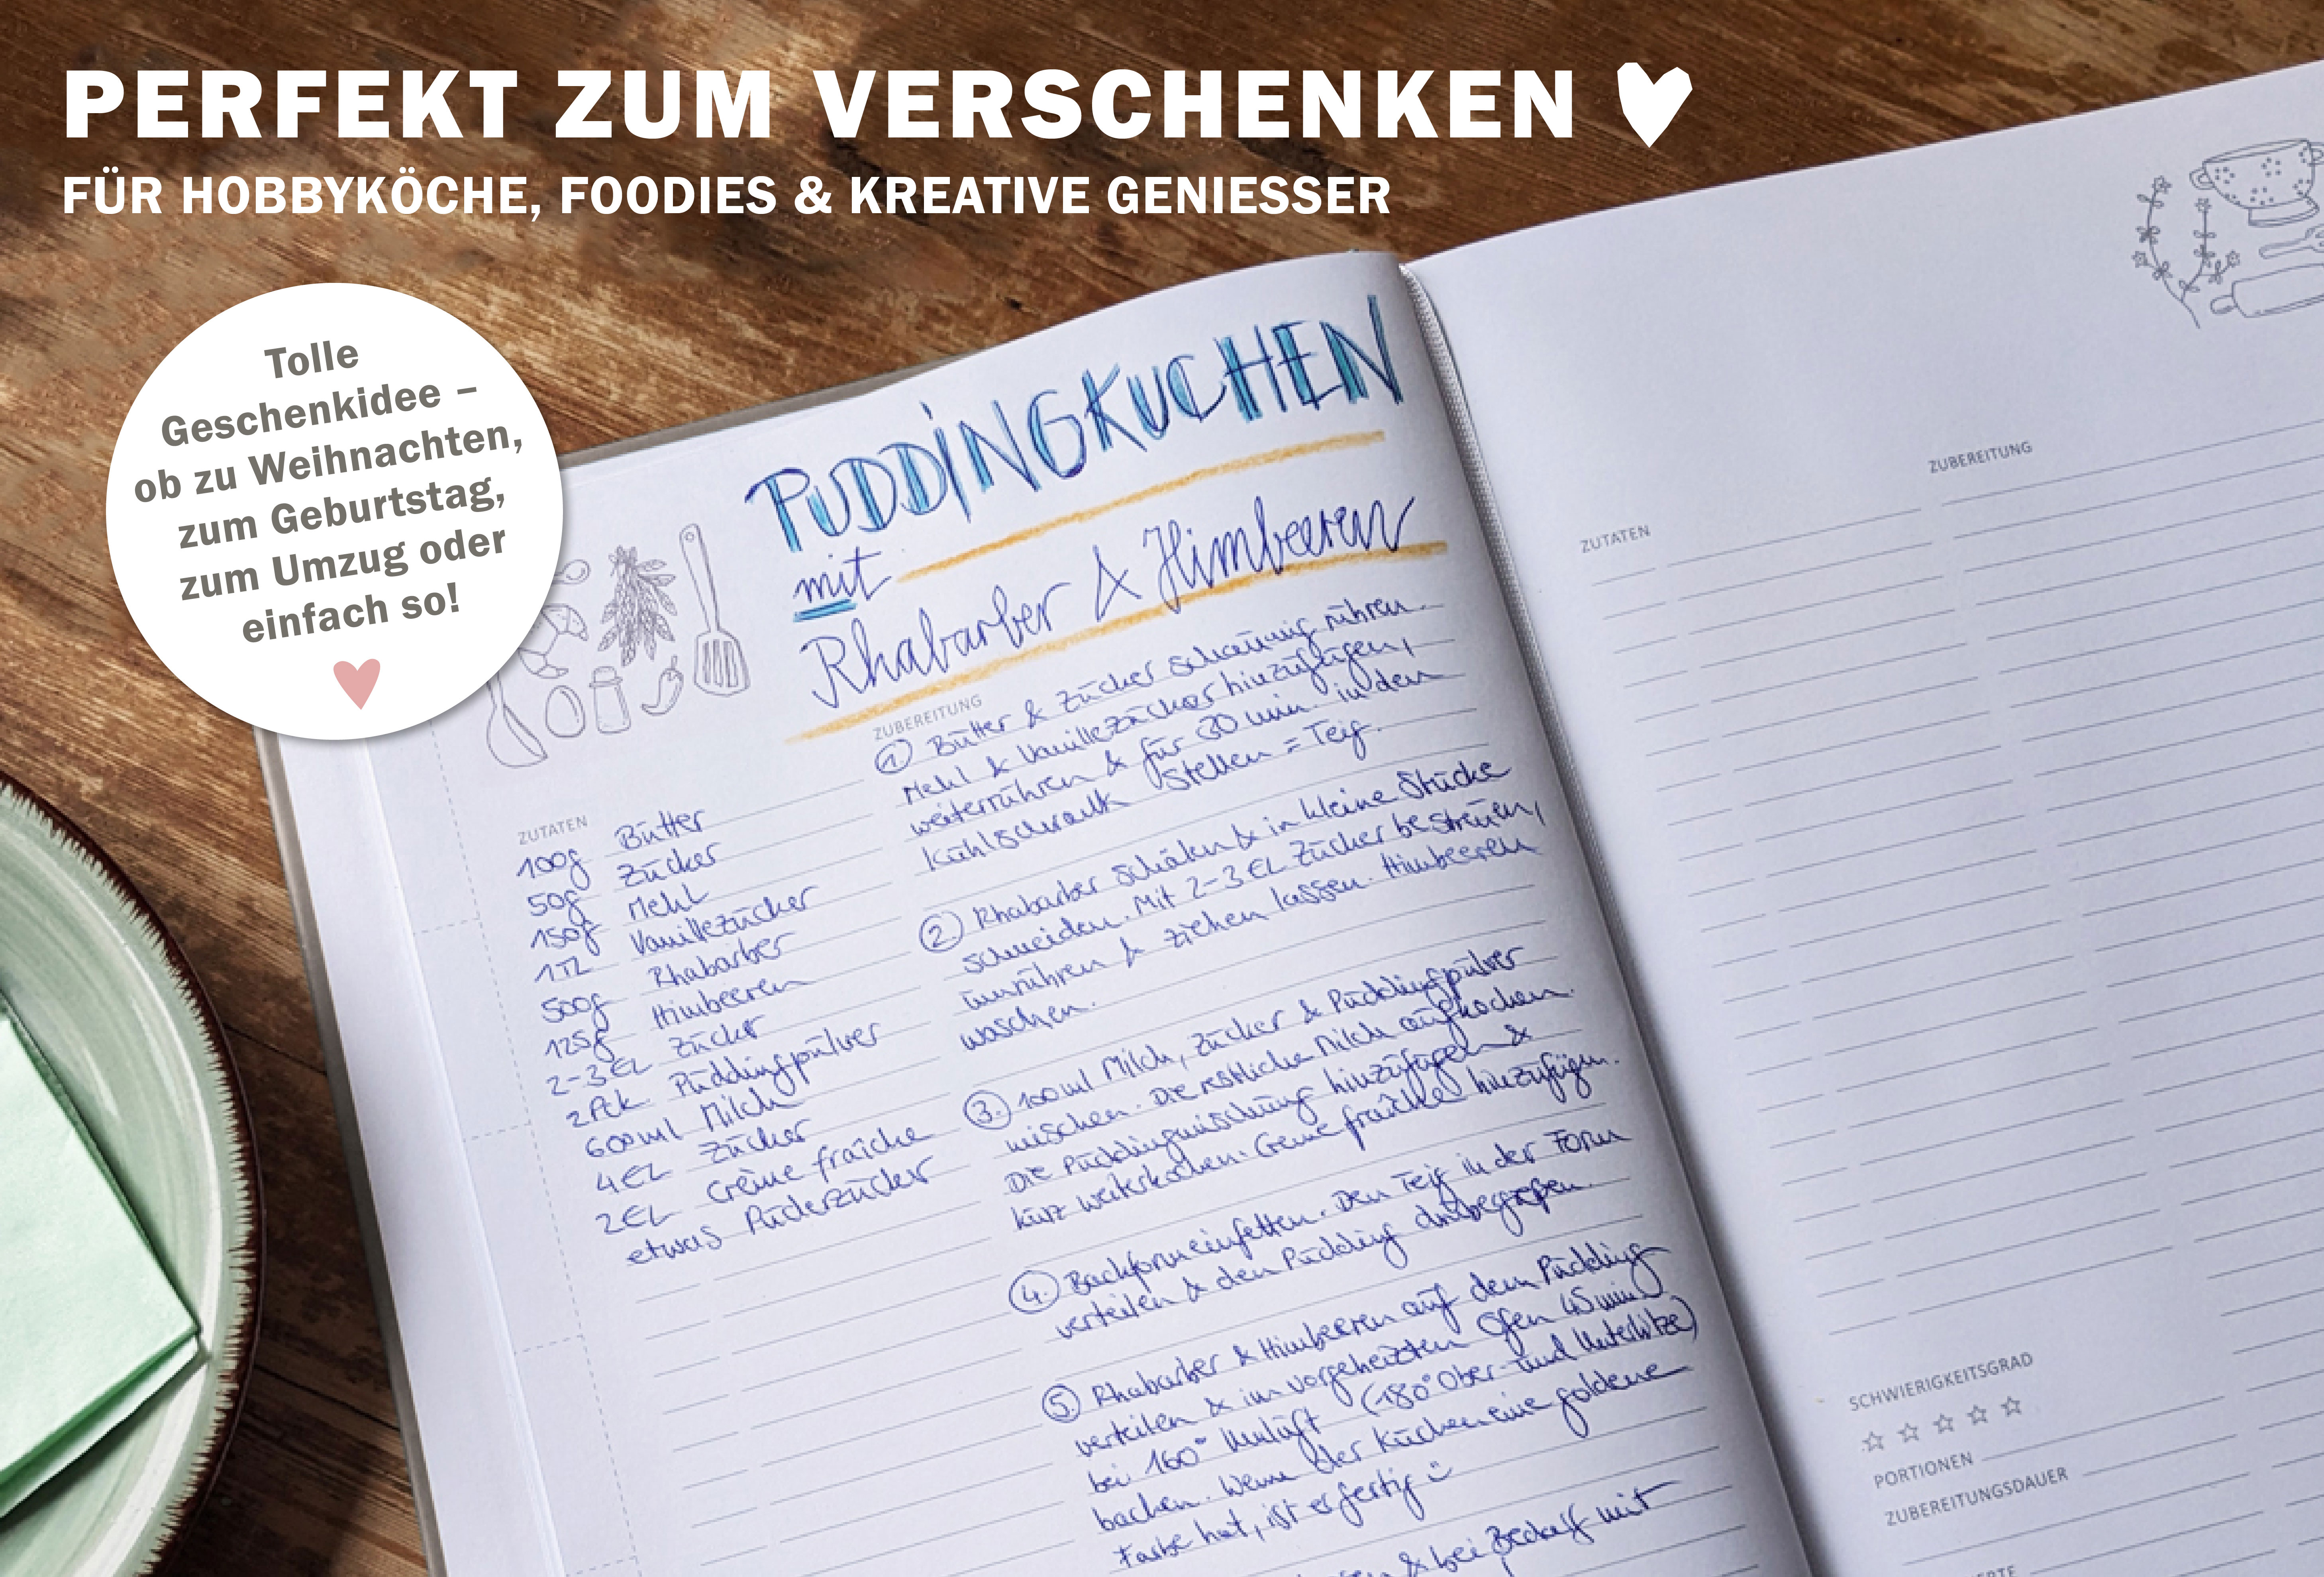 PERFEKT ZUM VERSCHENKEN
FÜR HOBBYKÖCHE, FOODIES & KREATIVE GENIESSER
Tolle
Geschenkidee –
ob zu Weihnachten,
zum Geburtstag,
zum Umzug oder
einfach so!
PUDDINGKUCHEN
mit
Rhabarber & Himbeeren
ZUTATEN
100g Butter
50g Zucker
150g Mehl
1TL Vanillezucker
500g Rhabarber
125g Himbeeren
2-3EL Zucker
2Pck. Puddingpulver
600ml Milch
4EL Zucker
2EL Crème fraîche
etwas Puderzucker
ZUBEREITUNG
1. Butter & Zucker schaumig rühren.
Mehl & Vanillezucker hinzufügen,
weiterrühren & für 30 min. in den
Kühlschrank stellen = Teig.
2. Rhabarber schälen & in kleine Stücke
schneiden. Mit 2-3 EL Zucker bestreuen,
umrühren & ziehen lassen. Himbeeren
waschen.
3. 100ml Milch, Zucker & Puddingpulver
mischen. Die restliche Milch aufkochen.
Die Puddingmischung hinzufügen &
kurz weiterkochen. Creme fraîche hinzufügen.
4. Backform einfetten. Den Teig in der Form
verteilen & den Pudding drübergeben.
5. Rhabarber & Himbeeren auf dem Pudding
verteilen & im vorgeheizten Ofen 45 min
bei 160° Umluft (180° Ober- und Unterhitze)
backen. Wenn der Kuchen eine goldene
Farbe hat, ist er fertig
& bei Bedarf mit
ZUTATEN
ZUBEREITUNG
SCHWIERIGKEITSGRAD
PORTIONEN
ZUBEREITUNGSDAUER